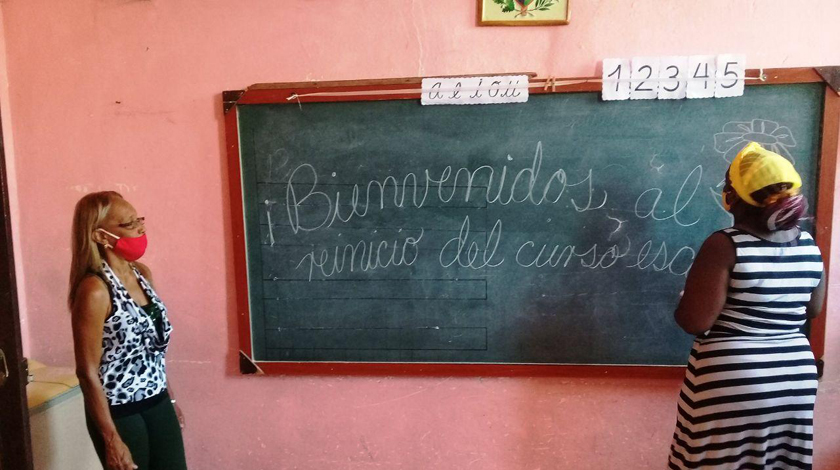 a e i o u
1 2 3 4 5
¡Bienvenidos al
reinicio del curso esc